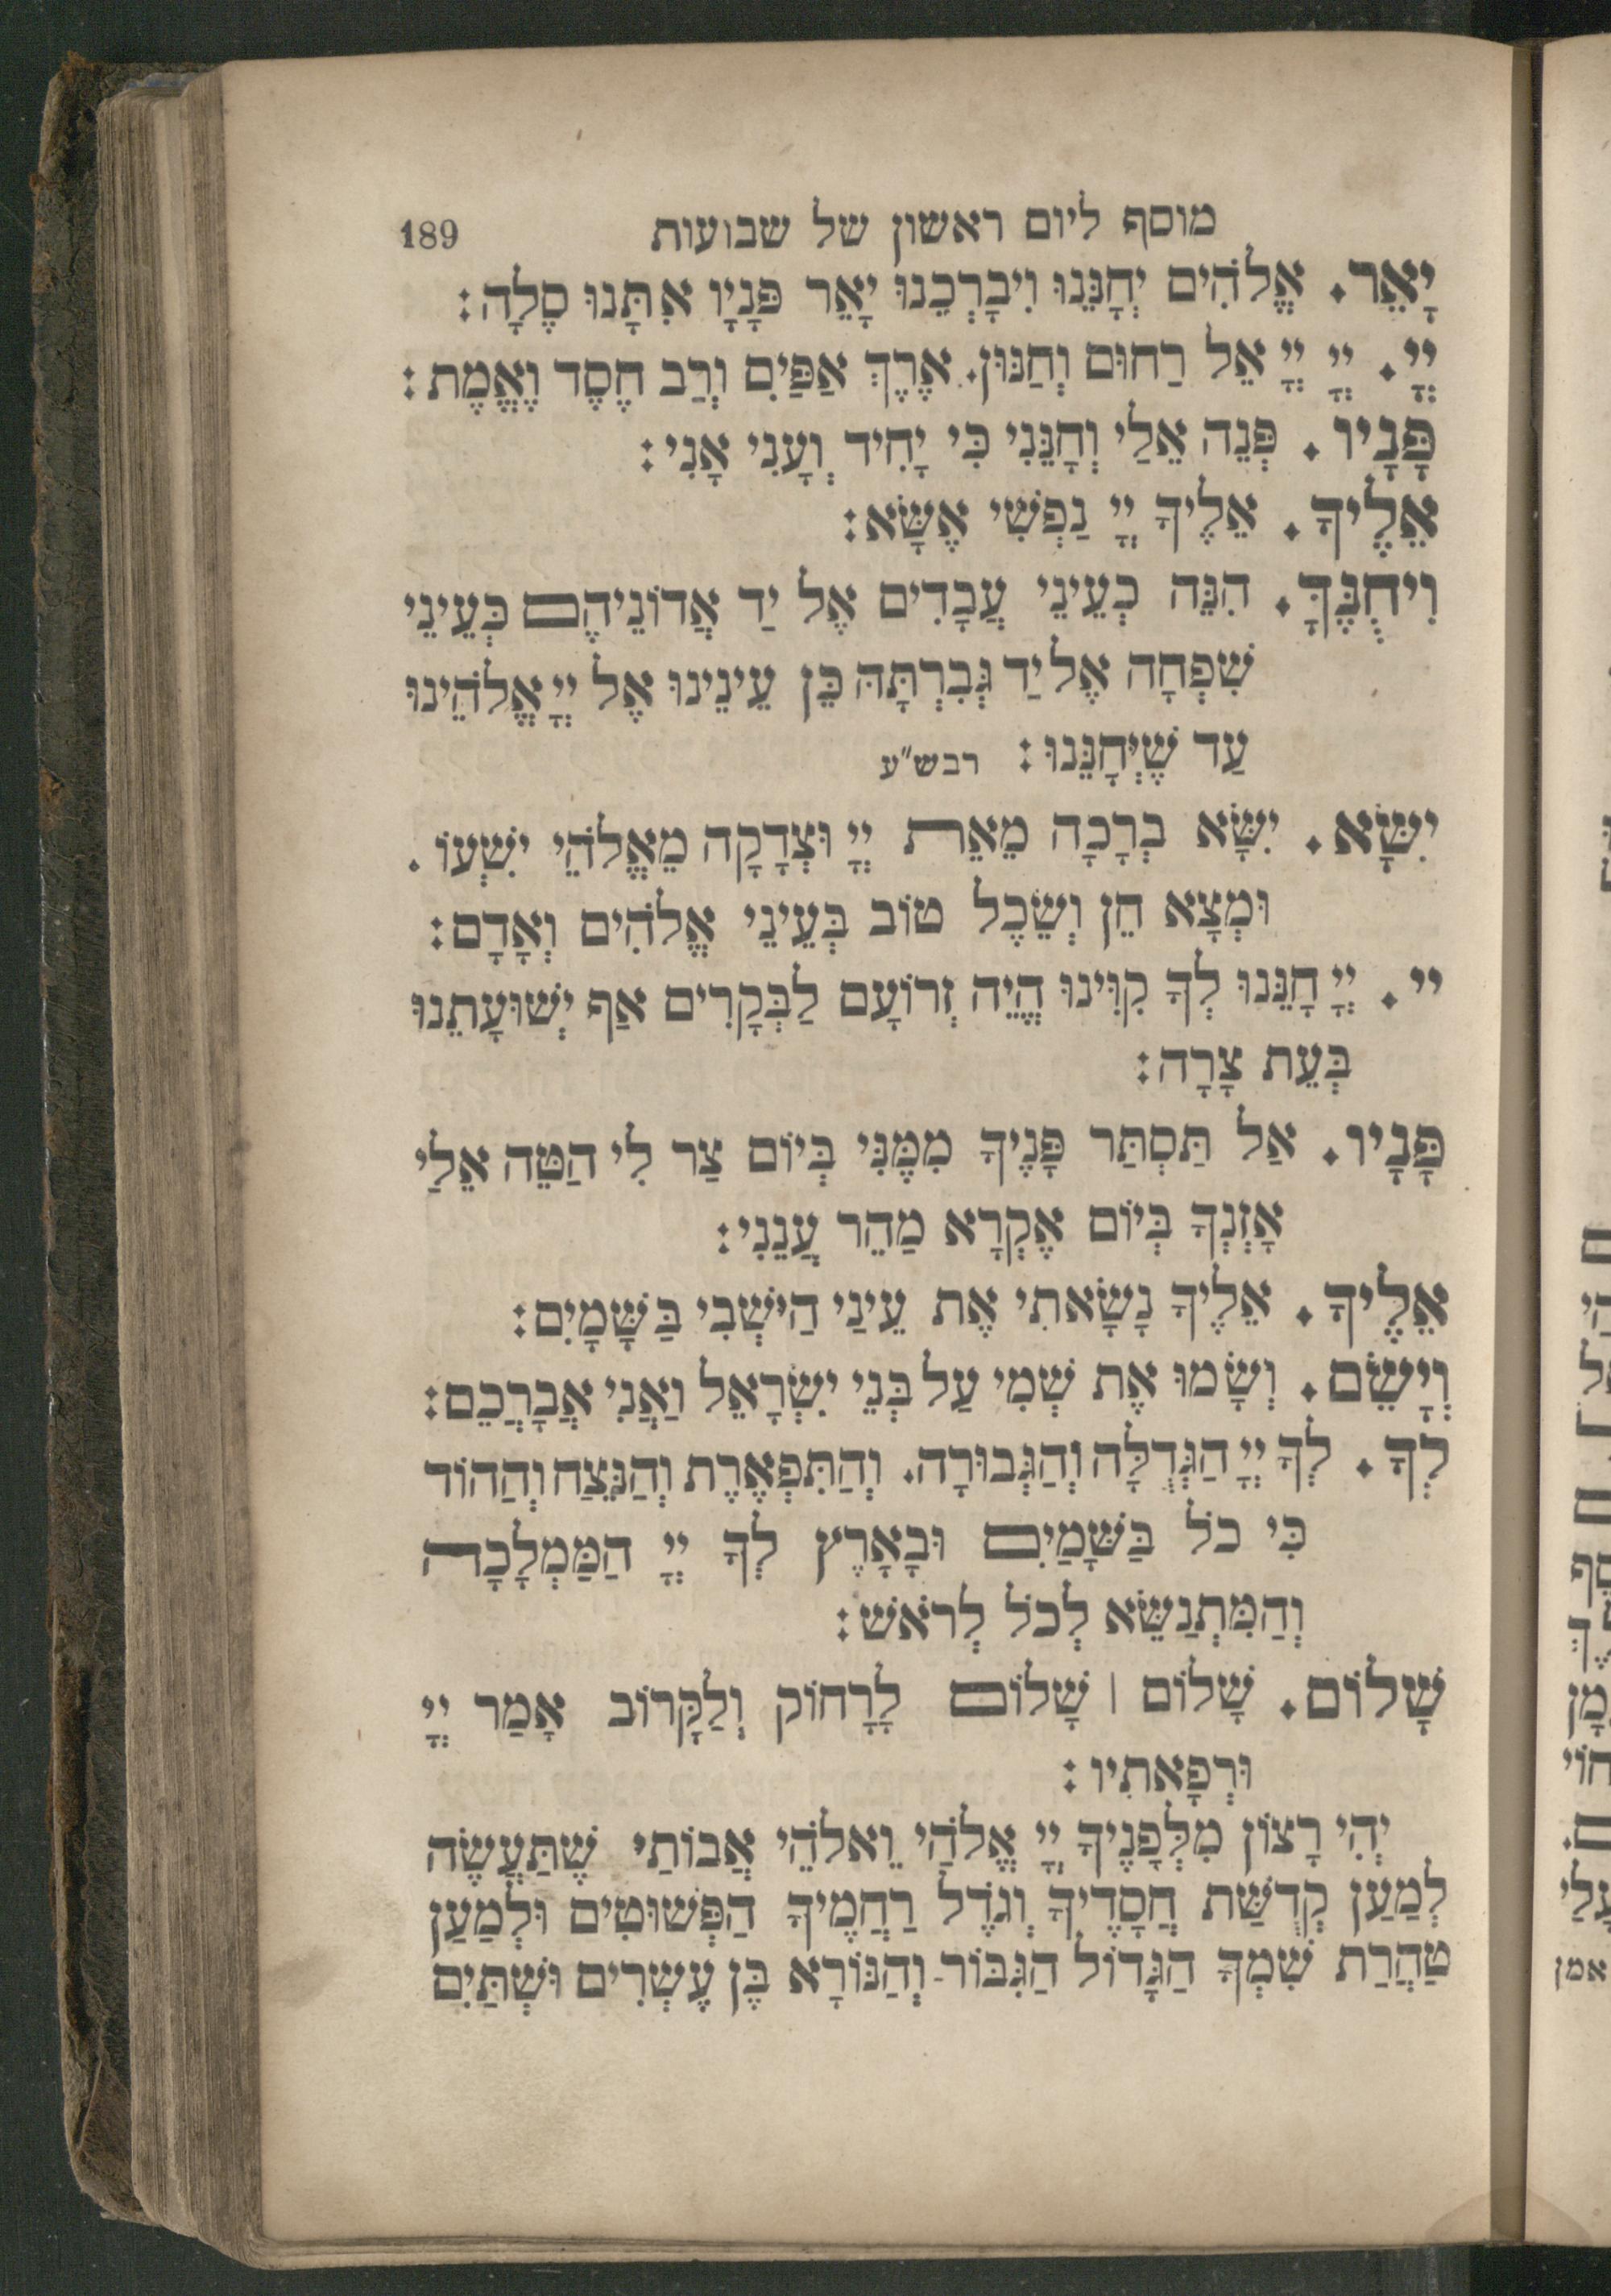 מוסף ליום ראשון של שבועות 189
יָאֵר. אֱלֹהִים יְחָנֵּנוּ וִיבָרְכֵנוּ יָאֵר פָּנָיו אִתָּנוּ סֶלָה:
יְיָ. יְיָ יְיָ אֵל רַחוּם וְחַנּוּן. אֶרֶךְ אַפַּיִם וְרַב חֶסֶד וֶאֱמֶת:
פָּנָיו. פְּנֵה אֵלַי וְחָנֵּנִי כִּי יָחִיד וְעָנִי אָנִי:
אֵלֶיךָ. אֵלֶיךָ יְיָ נַפְשִׁי אֶשָּׂא:
וִיחֻנֶּךָּ. הִנֵּה כְעֵינֵי עֲבָדִים אֶל יַד אֲדוֹנֵיהֶם כְּעֵינֵי
שִׁפְחָה אֶל יַד גְּבִרְתָּהּ כֵּן עֵינֵינוּ אֶל יְיָ אֱלֹהֵינוּ
עַד שֶׁיְּחָנֵּנוּ: רבש״ע
יִשָּׂא. יִשָּׂא בְרָכָה מֵאֵת יְיָ וּצְדָקָה מֵאֱלֹהֵי יִשְׁעוֹ.
וּמְצָא חֵן וְשֵׂכֶל טוֹב בְּעֵינֵי אֱלֹהִים וְאָדָם:
יי. יְיָ חָנֵּנוּ לְךָ קִוִּינוּ הֱיֵה זְרוֹעָם לַבְּקָרִים אַף יְשׁוּעָתֵנוּ
בְּעֵת צָרָה:
פָּנָיו. אַל תַּסְתֵּר פָּנֶיךָ מִמֶּנִּי בְּיוֹם צַר לִי הַטֵּה אֵלַי
אָזְנְךָ בְּיוֹם אֶקְרָא מַהֵר עֲנֵנִי:
אֵלֶיךָ. אֵלֶיךָ נָשָׂאתִי אֶת עֵינַי הַיּשְׁבִי בַּשָּׁמָיִם:
וְיָשֵׂם. וְשָׂמוּ אֶת שְׁמִי עַל בְּנֵי יִשְׂרָאֵל וַאֲנִי אֲבָרְכֵם:
לְךָ. לְךָ יְיָ הַגְּדֻלָּה וְהַגְּבוּרָה. וְהַתִּפְאֶרֶת וְהַנֵּצַח וְהַהוֹד
כִּי כֹל בַּשָּׁמַיִם וּבָאָרֶץ לְךָ יְיָ הַמַּמְלָכָה
וְהַמִּתְנַשֵּׂא לְכֹל לְרֹאשׁ:
שָׁלוֹם. שָׁלוֹם | שָׁלוֹם לָרָחוֹק וְלַקָּרוֹב אָמַר יְיָ
וּרְפָאתִיו:
יְהִי רָצוֹן מִלְּפָנֶיךָ יְיָ אֱלֹהַי וֵאלֹהֵי אֲבוֹתַי שֶׁתַּעֲשֶׂה
לְמַעַן קְדֻשַּׁת חֲסָדֶיךָ וְגֹדֶל רַחֲמֶיךָ הַפְּשׁוּטִים וּלְמַעַן
טַהֲרַת שִׁמְךָ הַגָּדוֹל הַגִּבּוֹר וְהַנּוֹרָא בֶּן עֶשְׂרִים וּשְׁתַּיִם